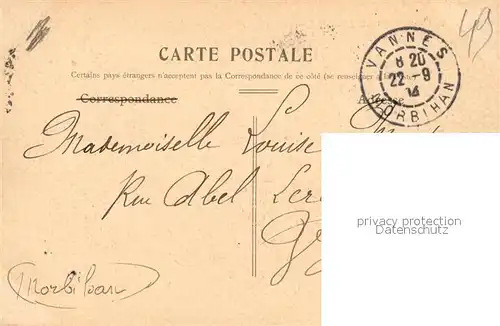 49
VANNES
8 20
22 - 9
14
MORBIHAN
CARTE POSTALE
Certains pays étrangers n'acceptent pas la Correspondance de ce côté (se renseigner à la
Correspondance
Adresse
Mademoiselle Louise
Rue Abel Ler
privacy protection
Datenschutz
(Morbihan)